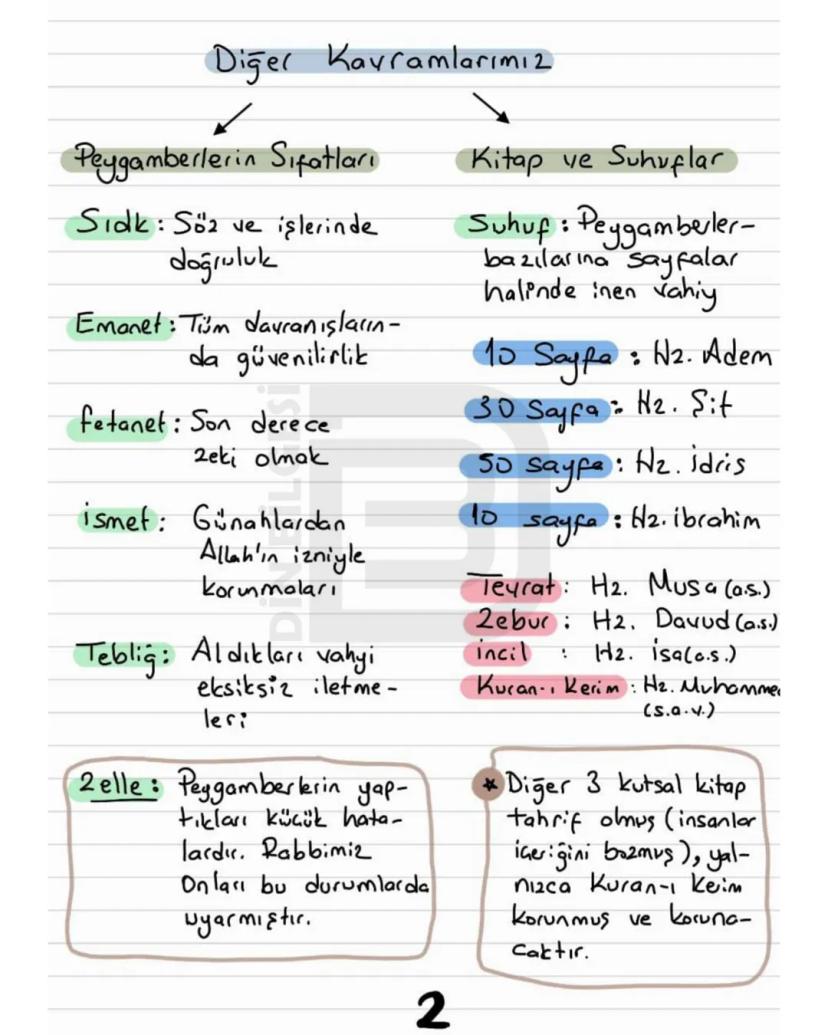 Diğer Kavramlarımız
Peygamberlerin Sıfatları
Sıdk: Söz ve işlerinde
doğruluk
Emanet: Tüm davranışların-
da güvenilirlik
fetanet: Son derece
zeki olmak
ismet: Günahlardan
Allah'ın izniyle
korunmaları
Tebliğ: Aldıkları vahyi
eksiksiz iletme-
leri
Zelle: Peygamberlerin yap-
tıkları küçük hata-
lardır. Rabbimiz
Onları bu durumlarda
uyarmıştır.
Kitap ve Suhuflar
Suhuf: Peygamberler-
bazılarına sayfalar
halinde inen vahiy
10 Sayfa: Hz. Adem
30 Sayfa: Hz. Şit
50 sayfa: Hz. idris
10 sayfa: Hz. ibrahim
Tevrat: Hz. Musa (a.s.)
Zebur: Hz. Davud (a.s.)
incil: Hz. İsa (a.s.)
Kuran-ı Kerim: Hz. Muhamme
(s.a.v.)
* Diğer 3 kutsal kitap
tahrif olmuş (insanlar
içeriğini bozmuş), yal-
nızca Kuran-ı Keim
korunmuş ve koruna-
caktır.
DİNBİLGİSİ
2